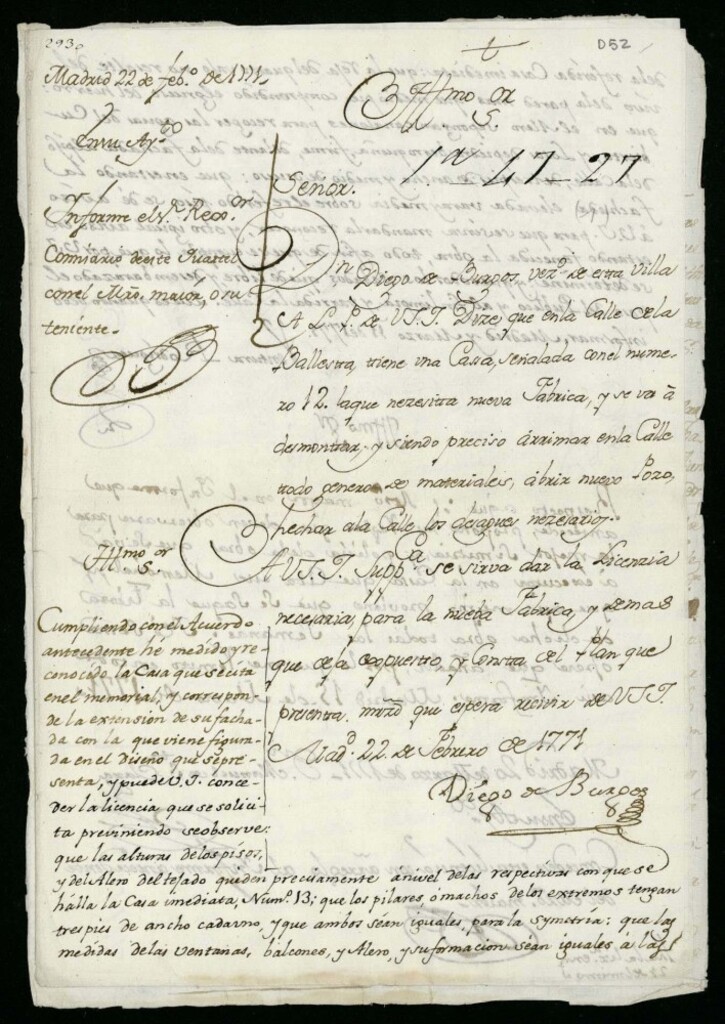 2930
D52
Madrid 22 de feb.º de 1771.
En su Ay.to
Informe el S.r Reg.or
Comisario de este Quartel
con el Mro. maior, o su
teniente.
Yllmo S.or
1ª 47-27
Señor.
Dn Diego de Burgos, vez.º de esta Villa
A L. P. de V.S.I. Dize, que en la Calle de la
Ballesta, tiene una Casa, señalada con el nume-
ro 12. la que nezesita nueva Fabrica, y se va à
desmontar, y siendo preciso àrrimar en la Calle
todo genero de materiales, àbrir nuevo Pozo,
hechar a la Calle los desagues nezesarios.
A V.S.I. Supp.ca se sirva dar la Licenzia
necesaria, para la nueba Fabrica, y demas
que deja expuesto, y Consta del Plan que
presenta, mrzd que espera recivir de V.S.I.
Mad.d 22. de Febrero de 1771
Diego de Burgos
Yllmo S.or
Cumpliendo con el Acuerdo
antecedente hé medido y re-
conocido la Casa que se cita
en el memorial, y correspon-
de la extension de su facha-
da con la que viene figura-
da en el Diseño que se pre-
senta, y puede V.I. conce-
der la licencia que se solici-
ta previniendo se observe:
que las alturas de los pisos,
y del Alero del tejado queden precisamente à nivel de las respectivas con que se
hálla la Casa imediata, Num.º 13; que los pilares, ò machos de los extremos tengan
tres pies de ancho cada uno, y que ambos séan iguales, para la symetría: que las
medidas de las ventanas, bàlcones, y Alero, y su formacion séan iguales à las